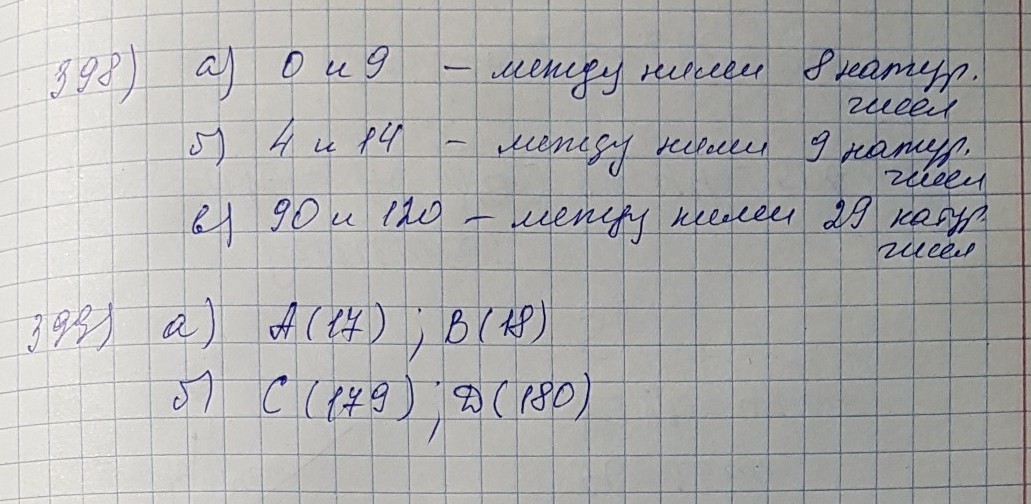 398) а) 0 и 9 – между ними 8 натур.
чисел
б) 4 и 14 – между ними 9 натур.
чисел
в) 90 и 120 – между ними 29 натур.
чисел
399) а) A(17) ; B(18)
б) C(179) ; D(180)